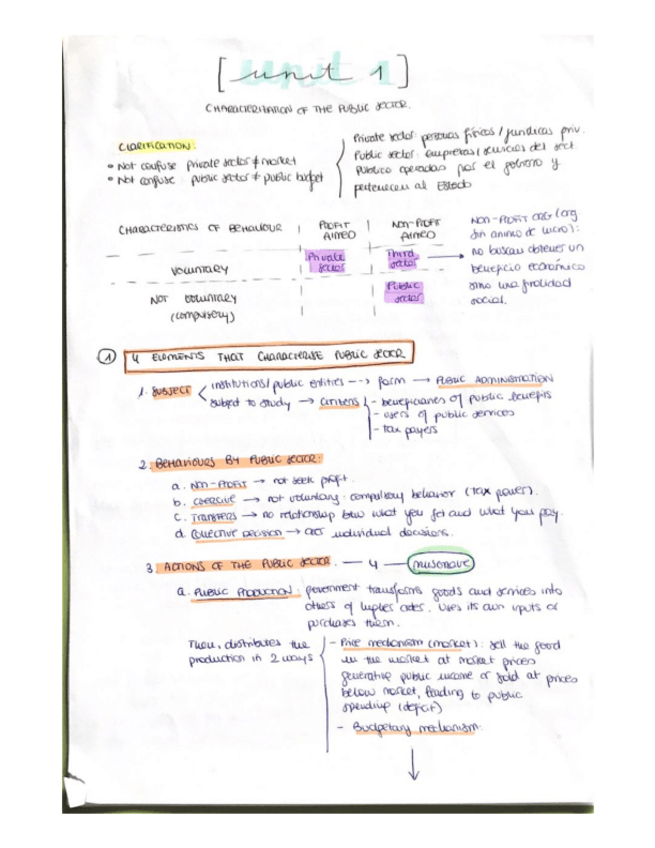 [unit 1]
CHARACTERISATION OF THE PUBLIC SECTOR.
CLARIFICATION:
• Not confuse private sector ≠ market
• Not confuse: public sector ≠ public budget
Private sector: personas físicas / jurídicas priv.
Public sector: empresas/servicios del sect.
público operadas por el gobierno y
pertenecen al Estado
CHARACTERISTICS OF BEHAVIOUR | PROFIT AIMED | NON-PROFIT AIMED
VOLUNTARY | Private sector | Third sector →
NOT VOLUNTARY (compulsory) | Public sector
NON-PROFIT ORG (org
sin ánimo de lucro):
no buscan obtener un
beneficio económico
sino una finalidad
social.
① 4 ELEMENTS THAT CHARACTERISE PUBLIC SECTOR
1. SUBJECT < institutions/public entities --> form → PUBLIC ADMINISTRATION
subject to study → CITIZENS - beneficiaries of public benefits
- users of public services
- tax payers
2. BEHAVIOURS BY PUBLIC SECTOR:
a. NON-PROFIT → not seek profit.
b. COERCIVE → not voluntary: compulsory behavior (tax power).
c. TRANSFERS → no relationship btw what you get and what you pay.
d. COLLECTIVE DECISION → individual decisions.
3. ACTIONS OF THE PUBLIC SECTOR. — 4 —
a. PUBLIC PRODUCTION: government transforms goods and services into
others of higher order. Uses its own inputs or
purchases them.
Then, distributes the
production in 2 ways
- Price mechanism (market): sell the good
in the market at market prices
generating public income or sold at prices
below market, leading to public
spending (deficit)
- Budgetary mechanism:
↓